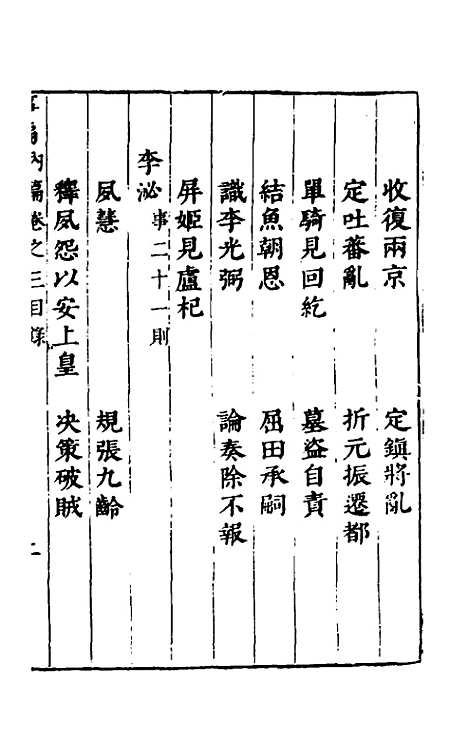 收復兩京　定鎮將亂
定吐蕃亂　折元振遷都
單騎見回紇　墓盜自責
結魚朝恩　屈田承嗣
識李光弼　論奏除不報
屏姬見盧杞
李泌事二十一則
夙慧　規張九齡
釋夙怨以安上皇　決策破賊
內篇卷之三目錄